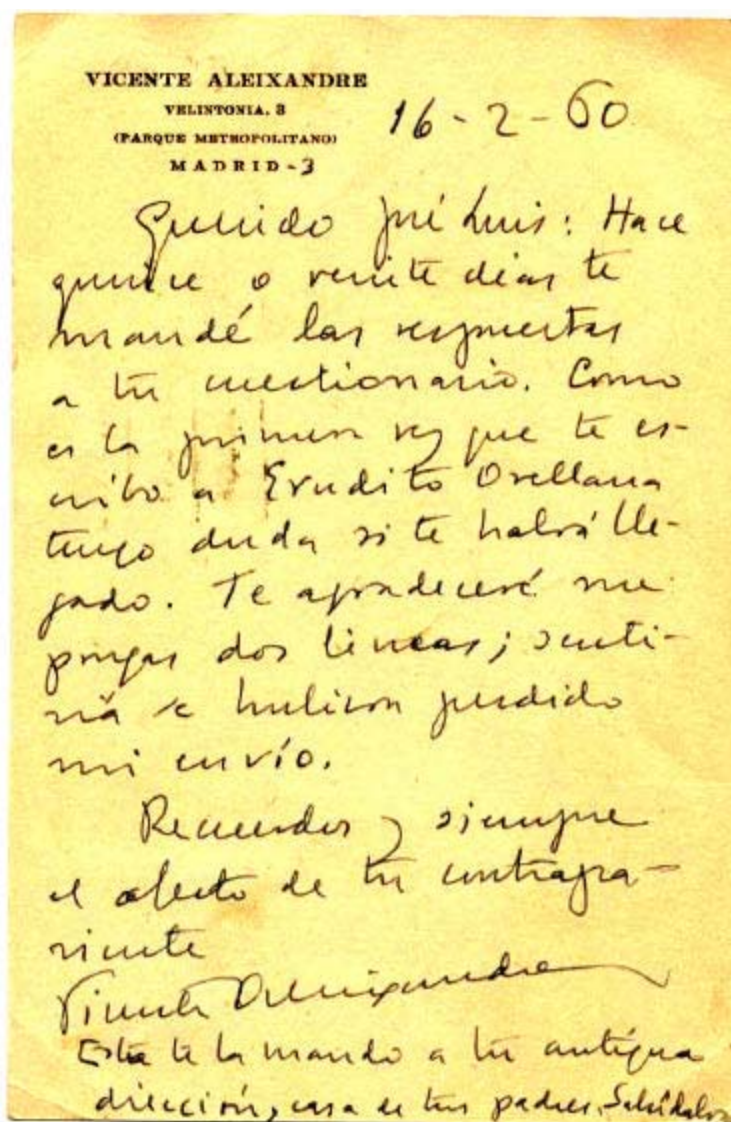 VICENTE ALEIXANDRE
VELINTONIA, 3
(PARQUE METROPOLITANO)
MADRID-3
16-2-60
Querido José Luis: Hace
quince o veinte días te
mandé las respuestas
a tu cuestionario. Como
es la primera vez que te es-
cribo a Erudito Orellana
tengo duda si te habrá lle-
gado. Te agradeceré me
pongas dos líneas; senti-
ría se hubieran perdido
mi envío.
Recuerdos y siempre
el afecto de tu contrapa-
riente
Vicente Aleixandre
Esta te la mando a tu antigua
dirección, casa de tus padres. Salúdalos